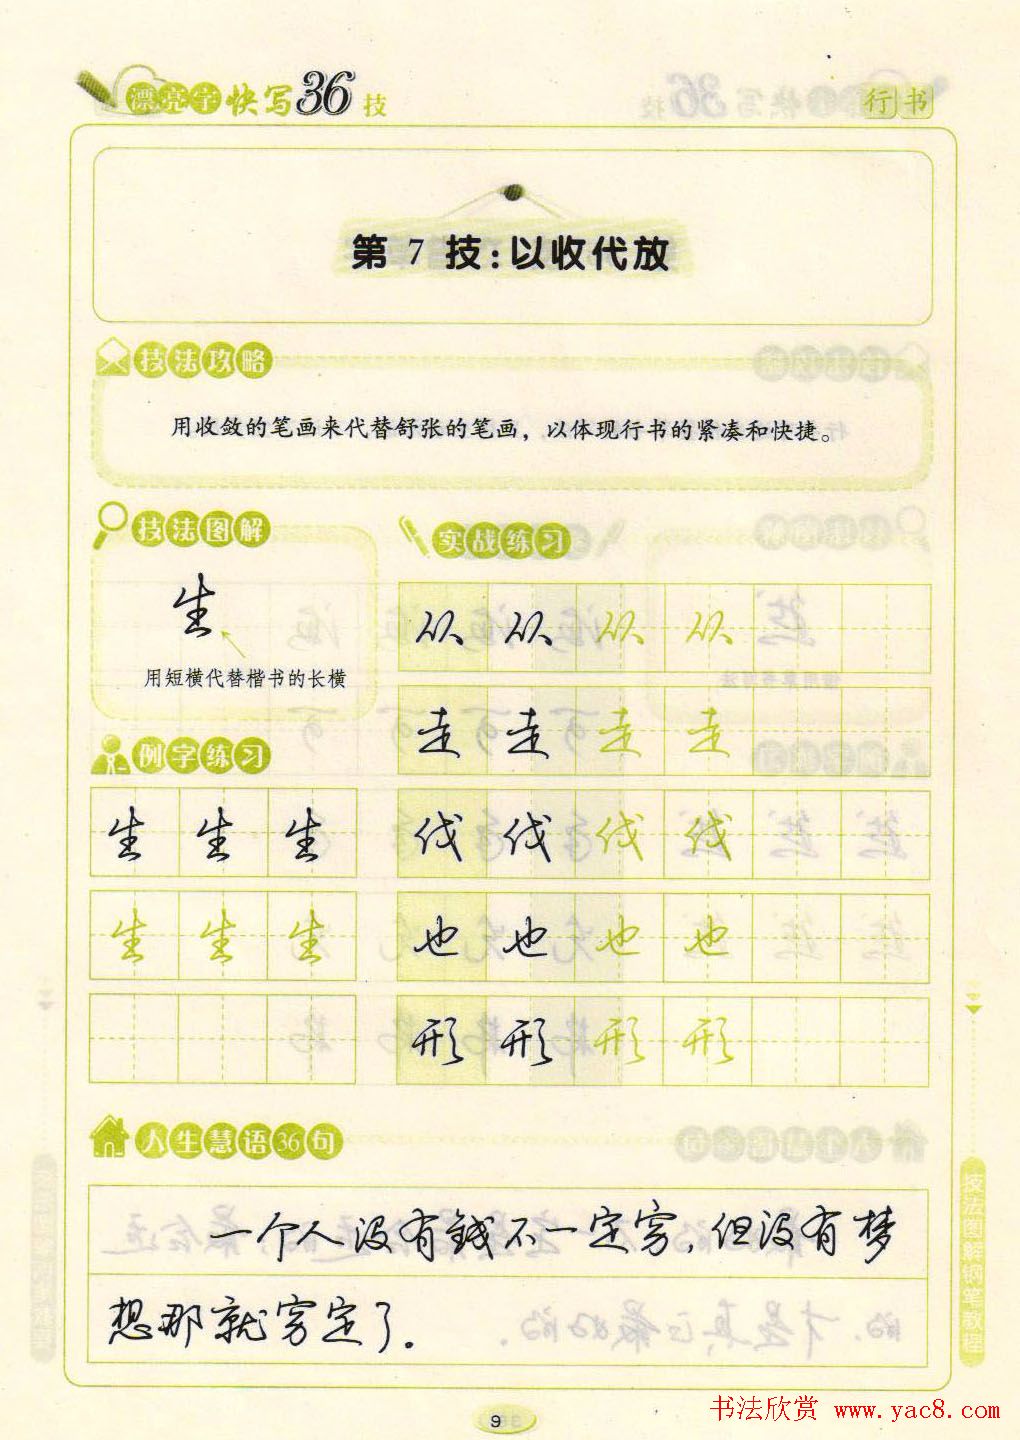 漂亮字快写36技
行书
第7技:以收代放
技法攻略
用收敛的笔画来代替舒张的笔画，以体现行书的紧凑和快捷。
技法图解
生
用短横代替楷书的长横
例字练习
生 生 生
生 生 生
实战练习
从 从 从 从
走 走 走 走
伐 伐 伐 伐
也 也 也 也
形 形 形 形
人生慧语36句
一个人没有錢不一定穷,但没有梦
想那就穷定了.
技法图解钢笔教程
9
书法欣赏 www.yac8.com